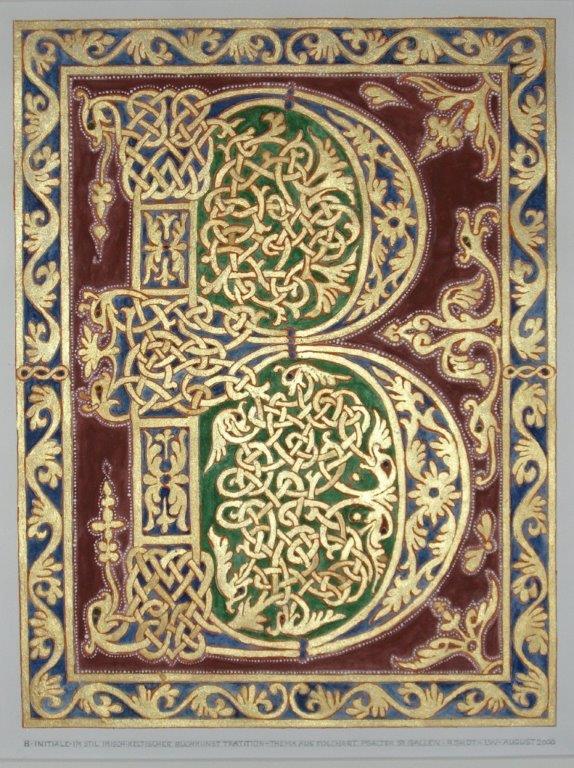 B
B-INITIALE-IM STIL IRISCH-KELTISCHER BUCHKUNST TRATITION-THEMA AUS FOLCHART PSALTER ST. GALLEN - AUGUST 2000